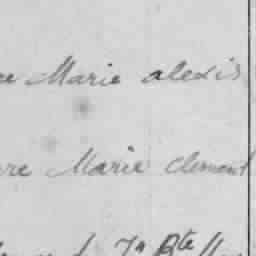 re Marie alexis
re Marie clement
Jn Bte